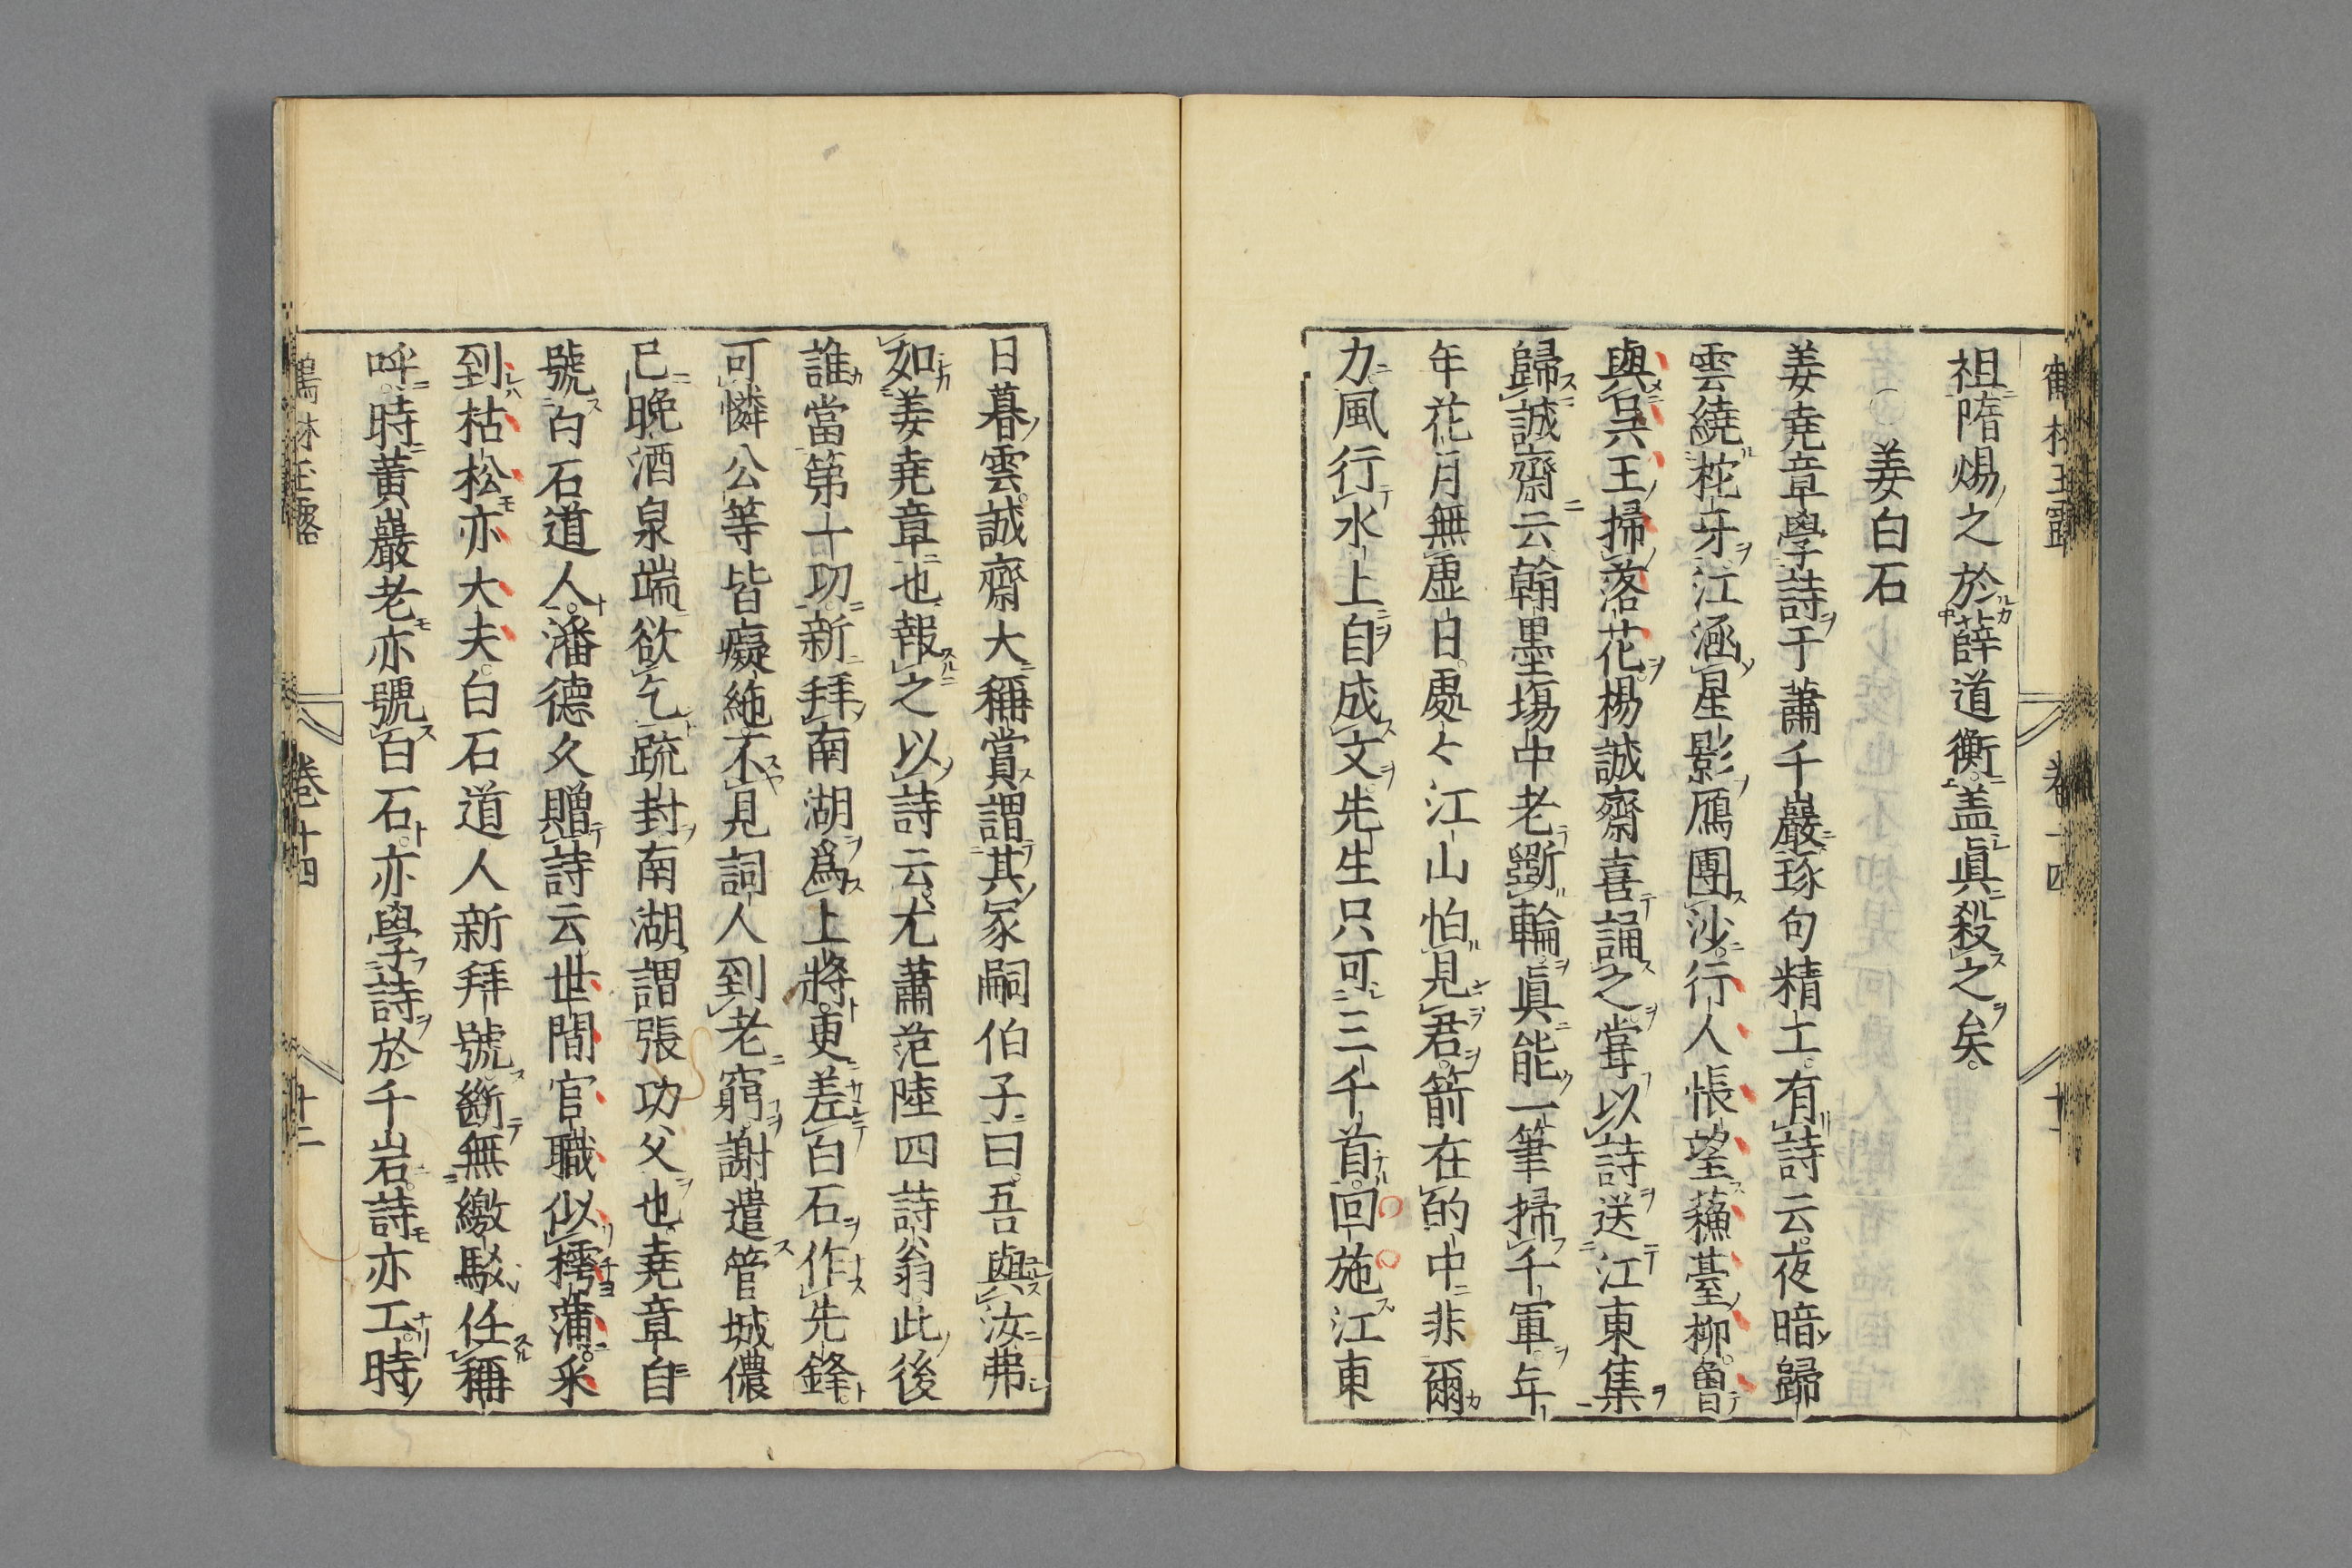 祖隋煬之於薛道衡盖眞殺之矣
姜白石
姜堯章學詩于蕭千巖琢句精工有詩云夜暗歸
雲繞柁牙江涵星影鴈團沙行人悵望蘓臺柳曽
與吳王掃落花楊誠齋喜誦之甞以詩送江東集
歸誠齋云翰墨塲中老斵輪眞能一筆掃千軍年
年花月無虛日處々江山怕見君箭在的中非爾
力風行水上自成文先生只可三千首回施江東
日暮雲誠齋大稱賞謂其冢嗣伯子曰吾與汝弗
如姜堯章也報之以詩云尤蕭范陸四詩翁此後
誰當第十功新拜南湖爲上將更差白石作先鋒
可憐公等皆癡絶不見詞人到老窮謝遣管城儂
已晚酒泉端欲乞疏封南湖謂張功父也堯章自
號白石道人潘德久贈詩云世間官職似樗蒲采
到枯松亦大夫白石道人新拜號斷無繳駁任稱
呼時黃巖老亦號白石亦學詩於千岩詩亦工時
卷十四